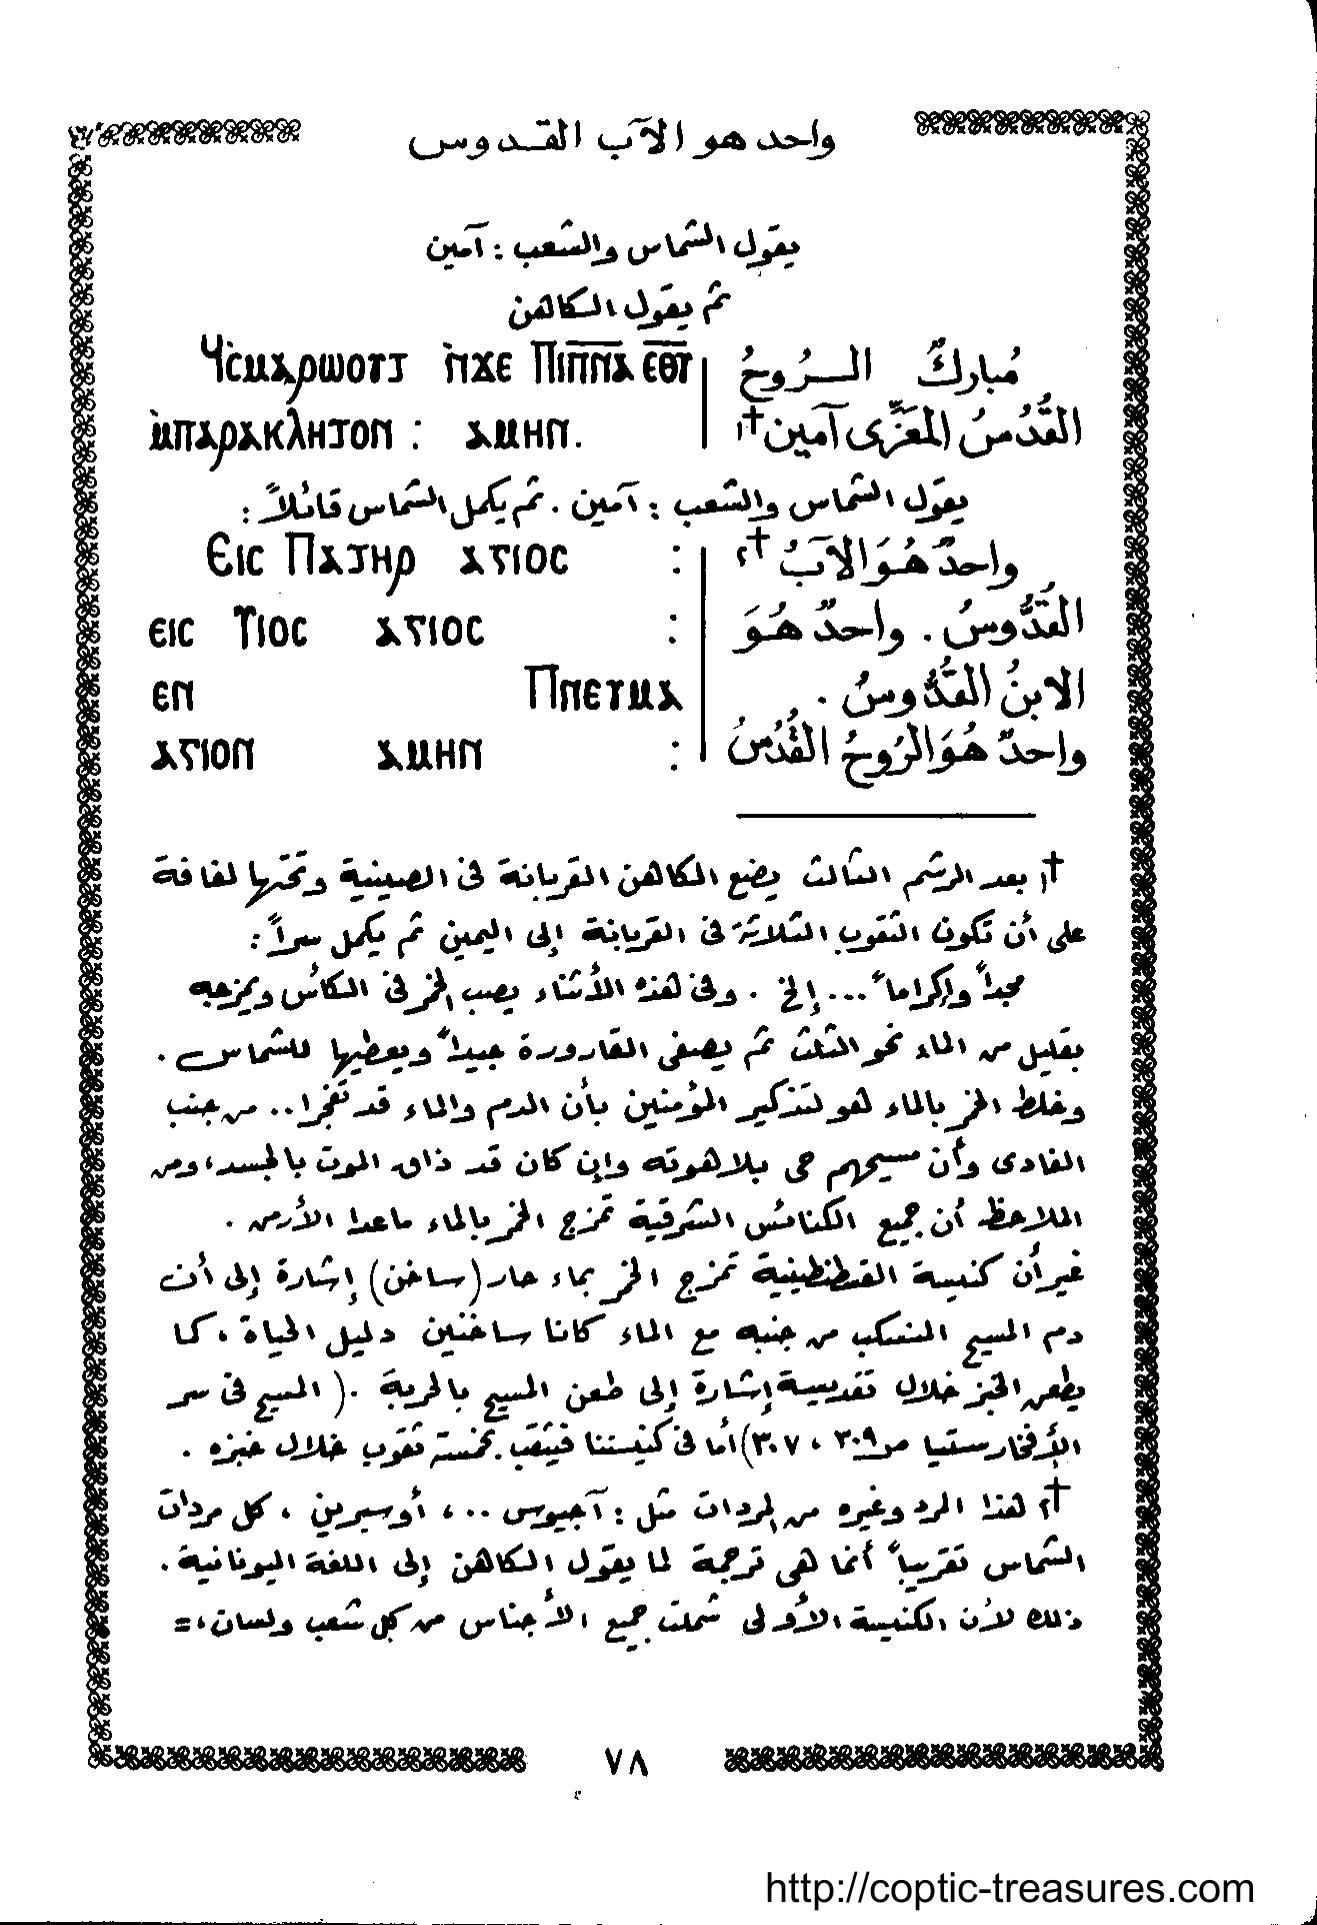 واحد هو الآب القدوس
يقول الشماس والشعب : آمين
ثم يقول الكاهن
Ϥ̀ⲥⲙⲁⲣⲱⲟⲩⲧ ⲛ̀ϫⲉ Ⲡⲓⲡ̅ⲛ̅ⲁ̅ ⲉ̅ⲑ̅ⲩ̅ | مُباركٌ الروحُ
ⲙ̀ⲡⲁⲣⲁⲕⲗⲏⲧⲟⲛ : ⲁⲙⲏⲛ. | القُدُسُ المُعَزِّى آمين †١
يقول الشماس والشعب : آمين . ثم يكمل الشماس قائلاً :
Ⲉⲓⲥ Ⲡⲁⲧⲏⲣ ⲁⲅⲓⲟⲥ : | واحدٌ هُوَ الآبُ †٢
ⲉⲓⲥ Ⲩⲓⲟⲥ ⲁⲅⲓⲟⲥ : | القُدُّوسُ . واحدٌ هُوَ
ⲉⲛ Ⲡⲛⲉⲩⲙⲁ | الابنُ القُدُّوسُ .
ⲁⲅⲓⲟⲛ ⲁⲙⲏⲛ : | واحدٌ هُوَ الرُوحُ القُدُسُ
†١ بعد الرشم الثالث يضع الكاهن القربانة فى الصينية وتحتها لفافة
على أن تكون الثقوب الثلاثة فى القربانة إلى اليمين ثم يكمل سراً :
مجداً وإكراماً ... إلخ . وفى هذه الأثناء يصب الخمر فى الكأس ويمزجه
بقليل من الماء نحو الثلث ثم يصفى القارورة جيداً ويعطيها للشماس .
وخلط الخمر بالماء هو لتذكير المؤمنين بأن الدم والماء قد تفجرا .. من جنب
الفادى وأن مسيحهم حى بلاهوته وإن كان قد ذاق الموت بالجسد، ومن
الملاحظ أن جميع الكنائس الشرقية تمزج الخمر بالماء ماعدا الأرمن .
غير أن كنيسة القسطنطينية تمزج الخمر بماء حار (ساخن) إشارة إلى أن
دم المسيح المنسكب من جنبه مع الماء كانا ساخنين دليل الحياة ، كما
يطعن الخبز خلال تقديسة إشارة إلى طعن المسيح بالحربة . ( المسيح فى سر
الأفخارستيا ص ٣٠٩ ، ٣٠٧) أما فى كنيستنا فيثقب بخمسة ثقوب خلال خبزه .
†٢ هذا الرد وغيره من المردات مثل : آجيوس .. ، أوسيرين ، كل مردات
الشماس تقريباً أنما هى ترجمة لما يقول الكاهن إلى اللغة اليونانية .
ذلك لأن الكنيسة الأولى شملت جميع الأجناس من كل شعب ولسان ، =
٧٨
http://coptic-treasures.com